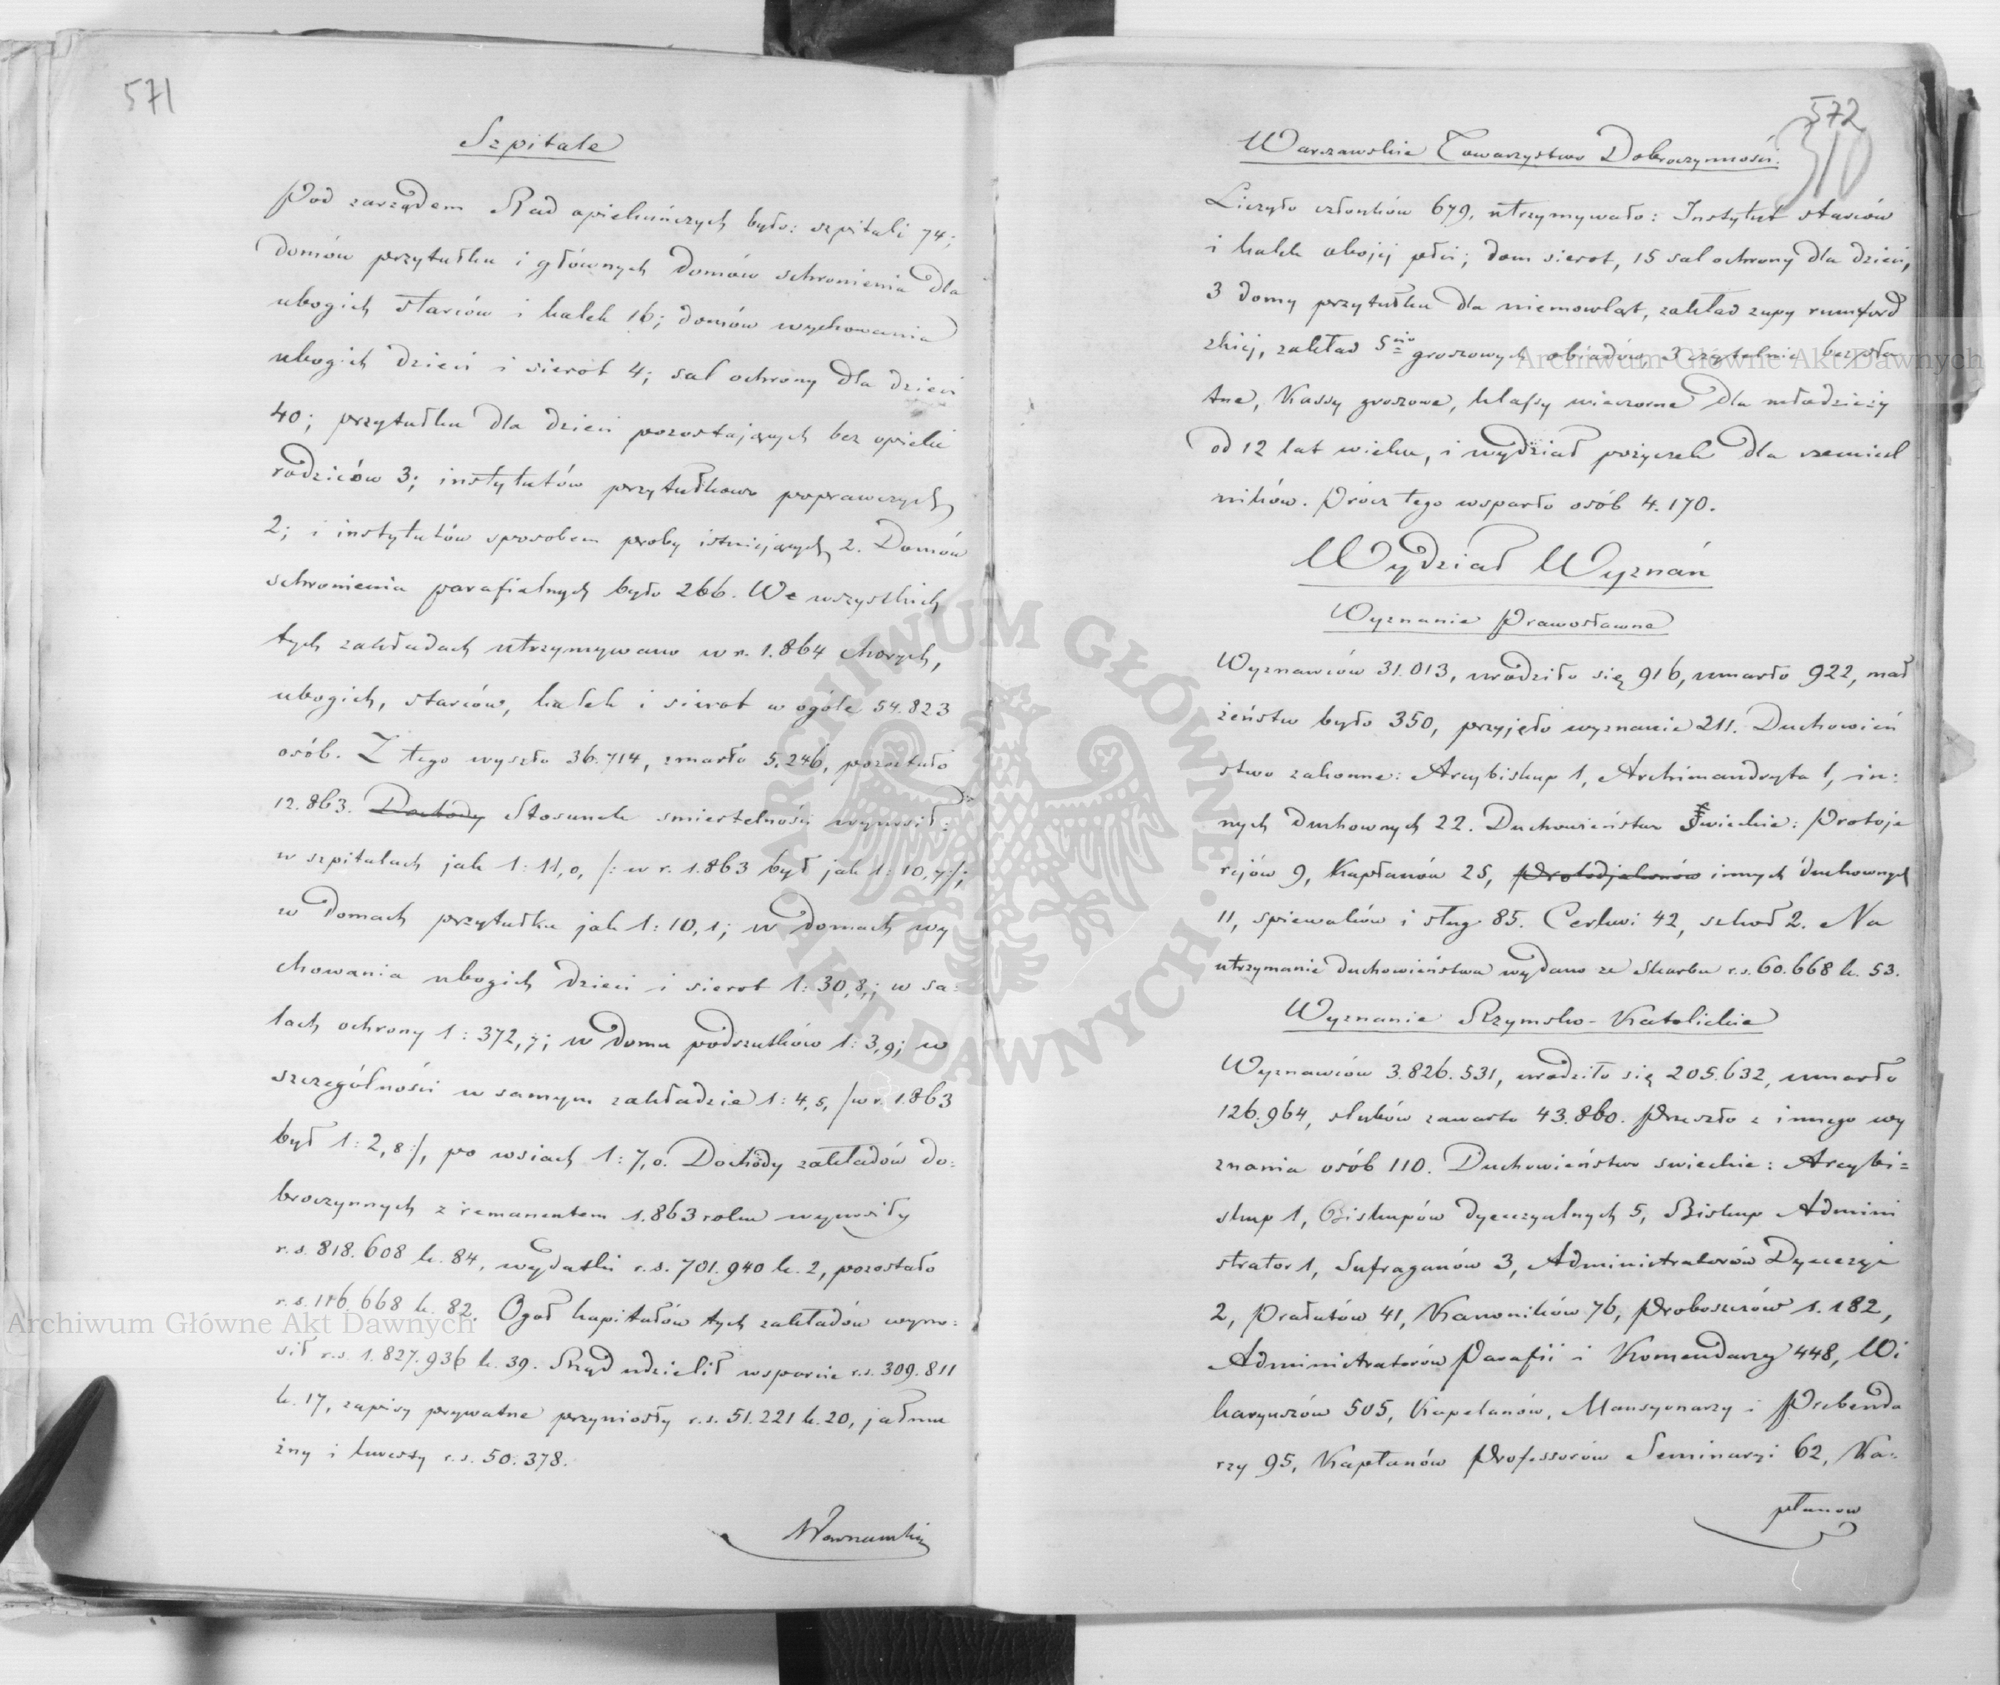 571
Szpitale
Pod zarządem Rad opiekuńczych było: szpitali 74;
domów przytułku i głównych domów schronienia dla
ubogich starców i kalek 16; domów wychowania
ubogich dzieci i sierot 4; sal ochrony dla dzieci
40; przytułku dla dzieci pozostających bez opieki
rodziców 3; instytutów przytułkowo poprawczych
2; i instytutów sposobem proby istniejących 2. Domów
schronienia parafialnych było 266. We wszystkich
tych zakładach utrzymywano w r. 1.864 chorych,
ubogich, starców, kalek i sierot w ogóle 54.823
osób. Z tego wyszło 36.714, zmarło 5.246, pozostało
12.863. Dochody Stosunek śmiertelności wynosił:
w szpitalach jak 1:11,0, /: w r. 1.863 był jak 1:10,7:/;
w domach przytułku jak 1:10,1; w domach wy
chowania ubogich dzieci i sierot 1:30,8,; w sa-
lach ochrony 1:372,7; w domu podrzutków 1:3,9; w
szczególności w samym zakładzie 1:4,5, /w r. 1.863
był 1:2,8:/, po wsiach 1:7,0. Dochody zakładów do-
broczynnych z remanentem 1.863 roku wynosiły
r.s. 818.608 k. 84, wydatki r.s. 701.940 k. 2, pozostało
r.s. 116.668 k. 82. Ogół kapitałów tych zakładów wyno-
sił r.s. 1.827.936 k. 39. Rząd udzielił wsparcie r.s. 309.811
k. 17, zapisy prywatne przyniosły r.s. 51.221 k. 20, jałmu
żny i kwesty r.s. 50.378.
572
310
Warszawskie Towarzystwo Dobroczynności.
Liczyło członków 679, utrzymywało: Instytut starców
i kalek obojej płci; dom sierot, 15 sal ochrony dla dzieci,
3 domy przytułku dla niemowląt, zakład zupy rumford
zkiej, zakład 5cio groszowych obiadów, 3 czytelnie bezpła
tne, Kassy groszowe, klassy wieczorne dla młodzieży
od 12 lat wieku, i wydział pożyczek dla rzemieśl
ników. Prócz tego wsparło osób 4.170.
Wydział Wyznań
Wyznanie Prawosławne
Wyznawców 31.013, urodziło się 916, umarło 922, mał
żeństw było 350, przyjęło wyznanie 211. Duchowień
stwo zakonne: Arcybiskup 1, Archimandryta 1, in:
nych duchownych 22. Duchowieństwo Świeckie: Protoje
rejów 9, Kapłanów 25, Protodjakonów innych duchownych
11, spiewaków i sług 85. Cerkwi 42, szkoł 2. Na
utrzymanie duchowieństwa wydano ze Skarbu r.s. 60.668 k. 53.
Wyznanie Rzymsko-Katolickie
Wyznawców 3.826.531, urodziło się 205.632, umarło
126.964, slubów zawarto 43.860. Przeszło z innego wy
znania osób 110. Duchowieństwo swieckie: Arcybi=
skup 1, Biskupów dyecezyalnych 5, Biskup Admini
strator 1, Sufraganów 3, Administratorów Dyecezyi
2, Prałatów 41, Kanoników 76, Proboszczów 1.182,
Administratorów Parafii i Komendarzy 448, Wi
karyuszów 505, Kapelanów, Mansyonarzy i Prebenda
rzy 95, Kapłanów Professorów Seminaryi 62, Ka-
płanow
Archiwum Główne Akt Dawnych
Archiwum Główne Akt Dawnych
ARCHIWUM GŁÓWNE · AKT DAWNYCH ·